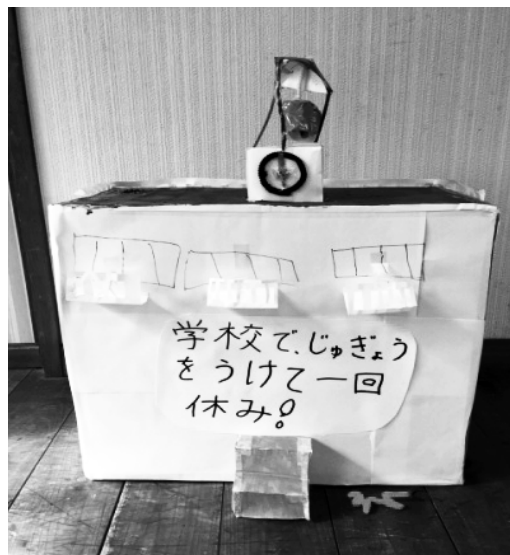 学校で、じゅぎょう
をうけて一回
休み!